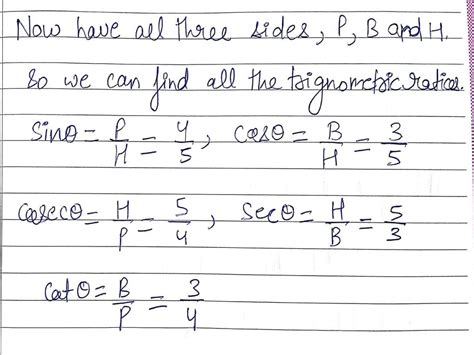 Now have all three sides, P, B and H.
So we can find all the trignometric ratios.
Sinθ = P/H = 4/5, cosθ = B/H = 3/5
Cosecθ = H/P = 5/4, Secθ = H/B = 5/3
Cotθ = B/P = 3/4